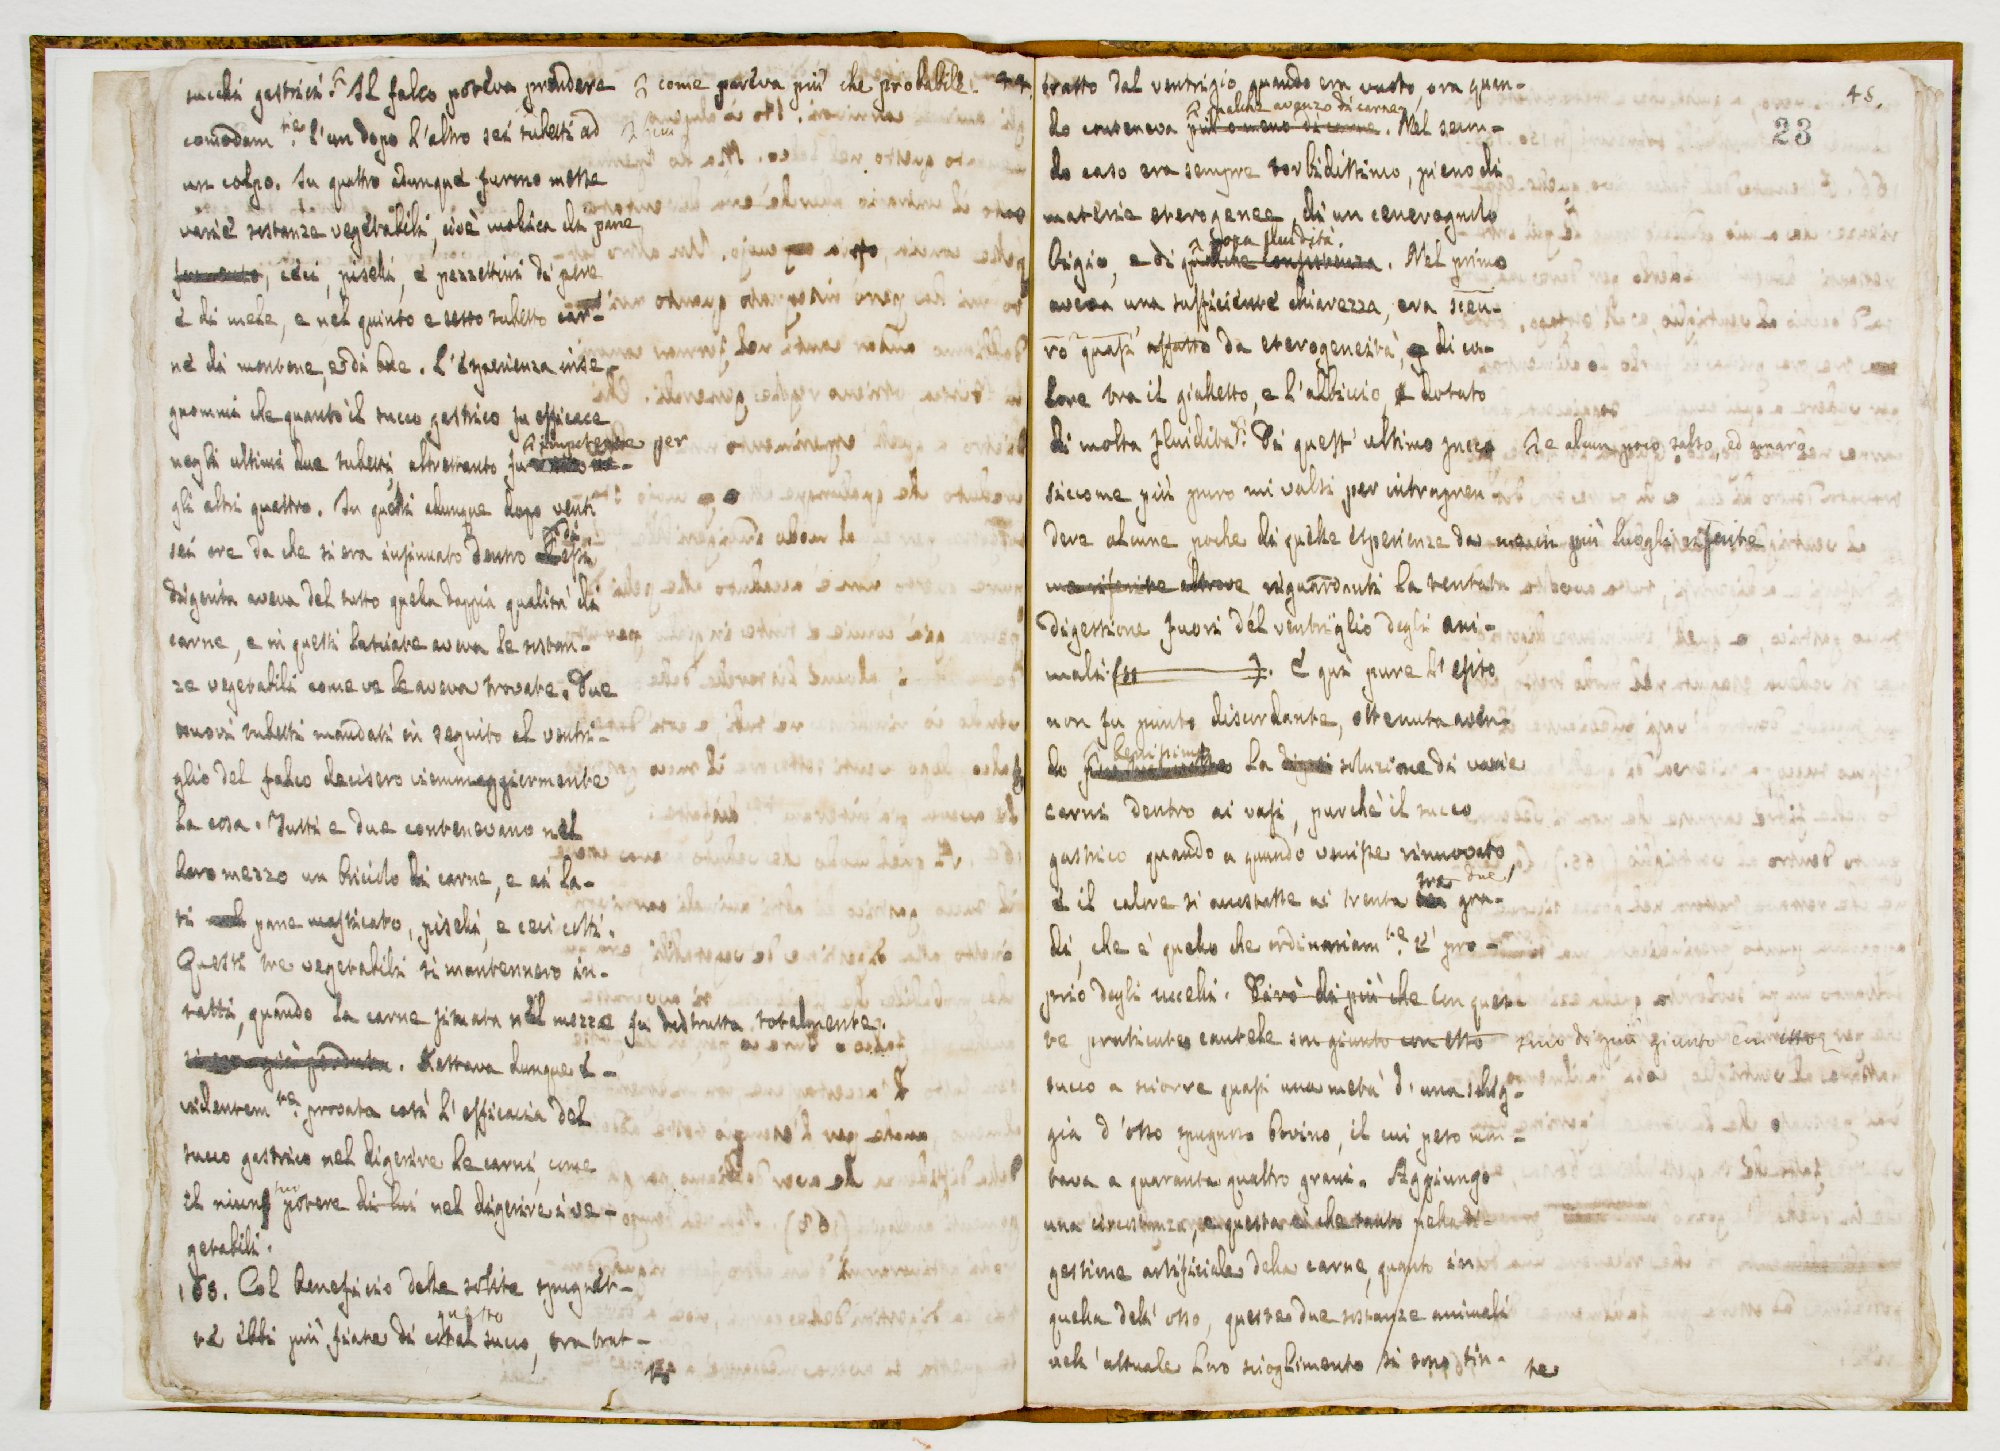 succhi gastrici. Il falco poteva prendere
come pareva più che probabile. 44.
comodam.te l'un dopo l'altro sei tubetti ad
un colpo. In quattro adunque furono messe
varie sostanze vegetabili, cioè mollica di pane
ceci, piselli, e pezzettini di pere
e di mele, e nel quinto e sesto tubetto car-
ne di montone, e di bue. L'esperienza inse-
gnommi che quanto il succo gastrico fu efficace
negli ultimi due tubetti, altrettanto fu impotente per
gli altri quattro. In questi adunque dopo venti
sei ore da che si era insinuato dentro di essi
digerita aveva del tutto quella doppia qualità di
carne, e in quelli lasciate aveva le sostan-
ze vegetabili come ve le aveva trovate. Due
nuovi tubetti mandati in seguito al ventri-
glio del falco decisero viemmaggiormente
la cosa. Tutti e due contenevano nel
loro mezzo un briciolo di carne, e ai la-
ti pane masticato, piselli, e ceci cotti.
Questi tre vegetabili si mantennero in-
tatti, quando la carne situata nel mezzo fu distrutta totalmente.
Restava dunque e-
videntem.te provata così l'efficacia del
succo gastrico nel digerire le carni, come
il niun potere di lui nel digerire i ve-
getabili.
168. Col beneficio delle solite spugnet-
questo
te ebbi più fiate di succo, ora trat-
to
45.
23
tratto dal ventriglio quando era vuoto, ora quan-
qualche avanzo di carne
do conteneva più o meno di carne. Nel secon-
do caso era sempre torbidissimo, pieno di
materie eterogenee, di un cenerognolo
poca fluidità.
bigio, e di qualche consistenza. Nel primo
aveva una sufficiente chiarezza, era sceu-
ro quasi affatto da eterogeneità, di co-
lore tra il gialletto, e l'albiccio, e dotato
di molta fluidità. Di quest'ultimo succo
e alcun poco salso, ed amaro
siccome più puro mi valsi per intrapren
dere alcune poche di quelle esperienze da me in più luoghi riferite
me riferite altrove riguardanti la tentata
digestione fuori del ventriglio degli ani-
mali. E qui pure l'esito
non fu punto discordante, ottenuta aven-
do la soluzione di varie
carni dentro ai vasi, purchè il succo
gastrico quando a quando venisse rinnovato
tre due
e il calore si accostasse ai trenta gra-
di, che è quello che ordinariam.te è pro-
prio degli uccelli. Dirò di più che con ques
te praticate cautele son giunto con esso
dirò di più giunto con esso
succo a sciorre quasi una metà d'una scheg-
gia d'osso spugnoso bovino, il cui peso mon-
tava a quaranta quattro grani. Aggiungo
una circostanza, e questa è che tanto nella di-
gestione artificiale della carne, quanto in
quella dell'osso, queste due sostanze animali
nell'attuale loro scioglimento si sono sin-
te